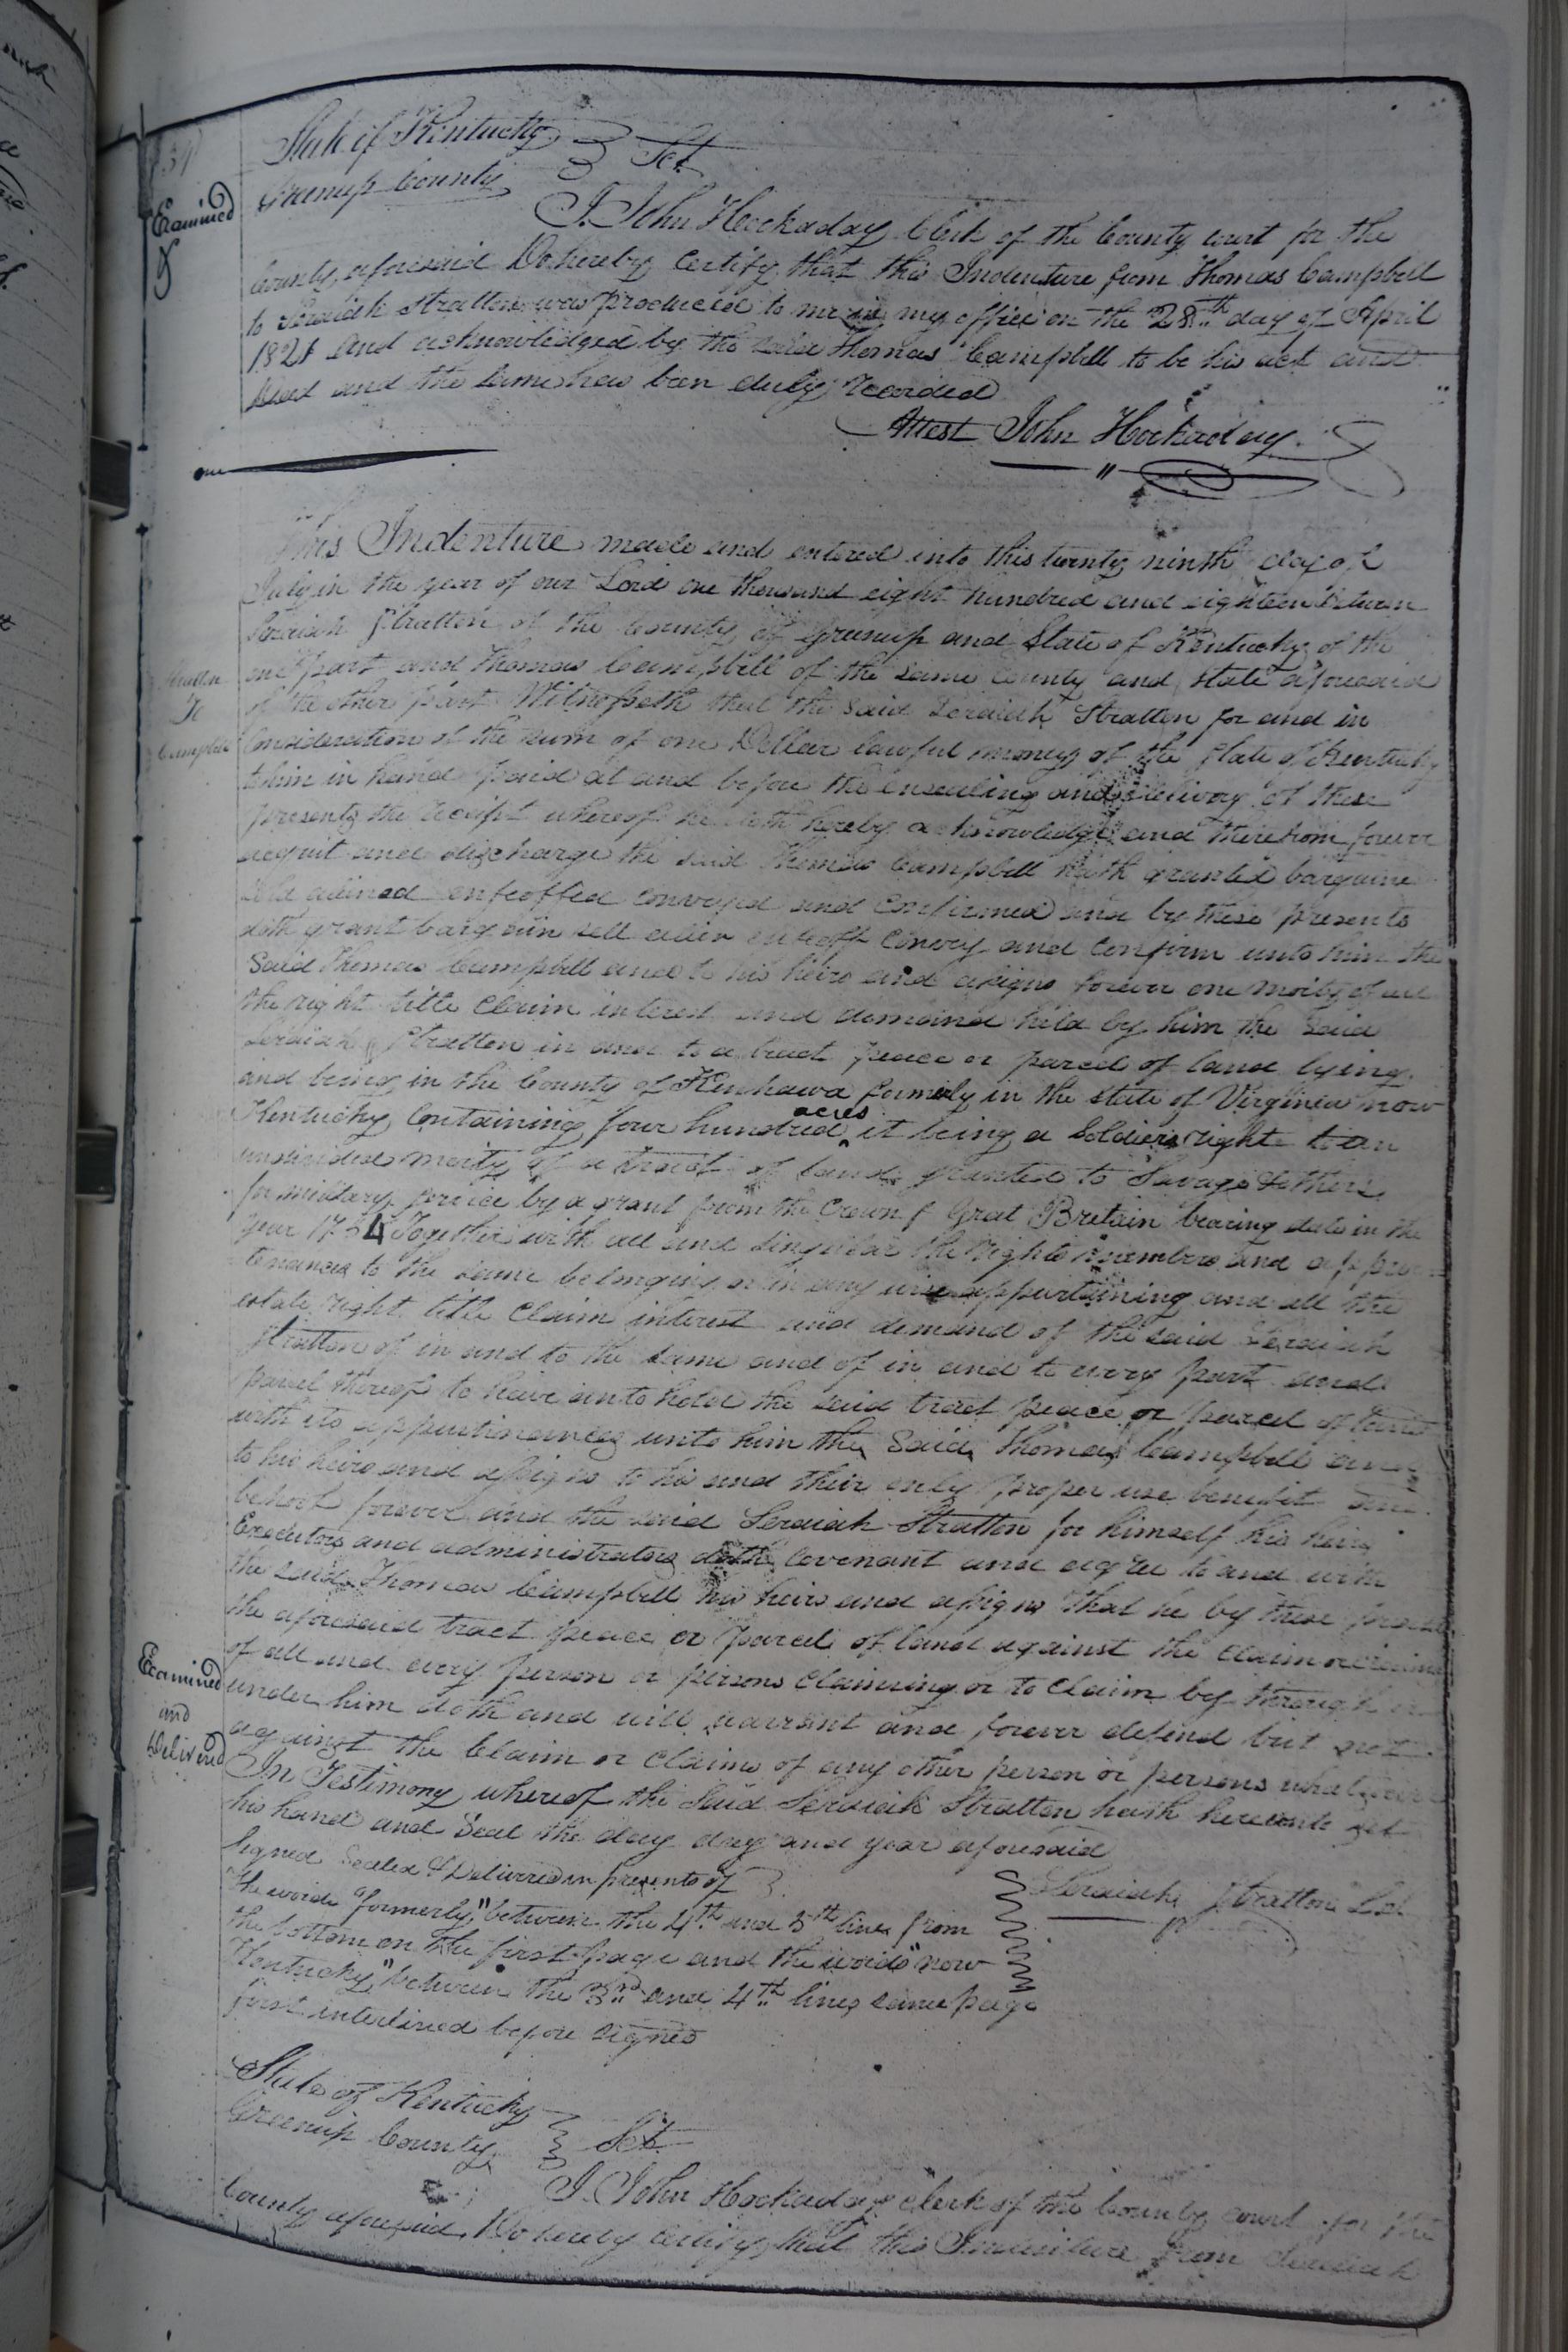 State of Kentucky } Sct
Greenup County
Examined
I John Hockaday Clerk of the County court for the
County aforesaid Do hereby Certify that this Indenture from Thomas Campbell
to Seraiah Stratton was produced to me in my office on the 28th day of April
1821 And acknowledged by the said Thomas Campbell to be his act and
deed and the same has been duly recorded
Attest John Hockaday
This Indenture made and entered into this twenty ninth day of
July in the year of our Lord one thousand eight hundred and eighteen between
Seraiah Stratton of the County of Greenup and State of Kentucky of the
one part and Thomas Campbell of the same County and state aforesaid
Stratton
To
Campbell
of the other part Witnesseth that the said Seraiah Stratton for and in
Consideration of the sum of one Dollar lawful money of the State of Kentucky
to him in hand paid at and before the ensealing and delivery of these
presents the receipt whereof he doth hereby acknowledge and therefrom forever
acquit and discharge the said Thomas Campbell hath granted bargained
sold aliened enfeoffed conveyed and Confirmed and by these presents
doth grant bargain sell alien enfeoff Convey and Confirm unto him the
Said Thomas Campbell and to his heirs and assigns forever one moity of all
the right title Claim interest and demand held by him the said
Seraiah Stratton in and to a tract peace or parcel of land lying
and being in the County of Kenhawa formerly in the state of Virginia now
Kentucky Containing four hundred acres it being a Soldiers right to an
undivided moity of a tract of land granted to Savage & others
for military service by a grant from the Crown of Great Britain bearing date in the
year 1754 Together with all and singular the rights members and appur
tenances to the same belonging or in any wise appurtaining and all the
estate right title Claim interest and demand of the said Seraiah
Stratton of in and to the same and of in and to every part and
parcel thereof to have an to hold the said tract peace or parcel of land
with its appurtinances unto him the Said Thomas Campbell and
to his heirs and assigns to his and their only proper use benefit and
behoof forever and the said Seraiah Stratton for himself his heirs
Executors and administrators doth Covenant and agree to and with
the said Thomas Campbell his heirs and assigns that he by these presents
the aforesaid tract peace or parcel of land against the claim or claims
of all and every person or persons Claiming or to Claim by through or
Examined
and
Delivered
under him doth and will warrant and forever defend but not
against the Claim or Claims of any other person or persons whatsoever
In Testimony whereof the Said Seraiah Stratton hath hereunto set
his hand and Seal the day day and year aforesaid
Signed Sealed & Delivered in presents of
Seraiah Stratton
The words "formerly," between the 4th and 5th lines from
the bottom on the first page and the words "now
Kentucky," between the 3rd and 4th lines same page
first interlined before signed
State of Kentucky } Sct
Greenup County
I John Hockaday clerk of the County court for the
County aforesaid Do hereby certify that this Indenture from Seraiah